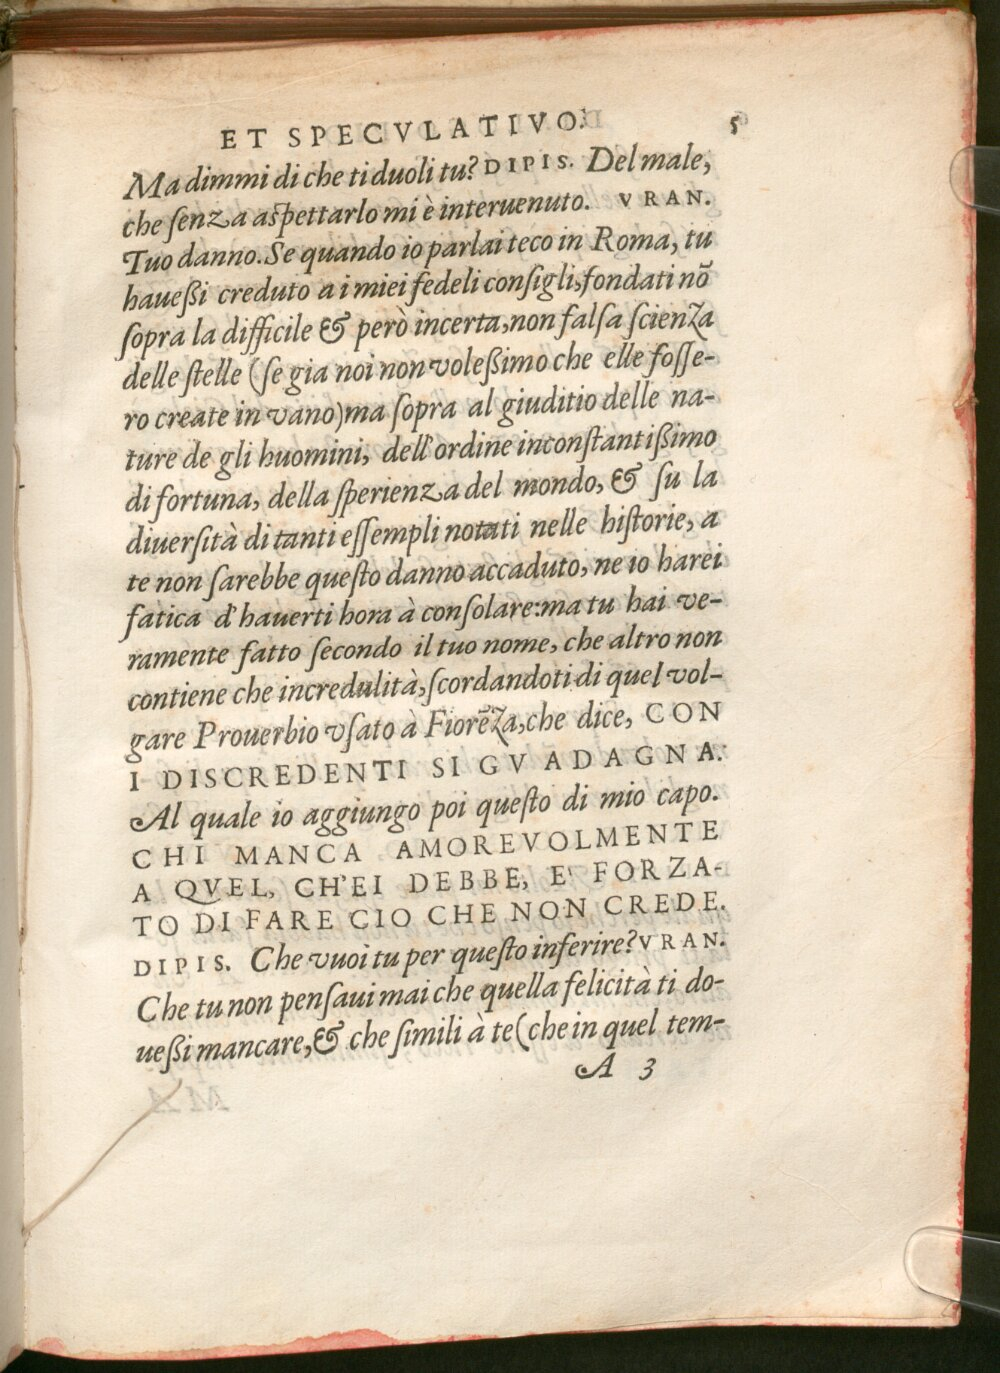 ET SPECVLATIVO. 5
Ma dimmi di che ti duoli tu? DIPIS. Del male,
che ſenza aſpettarlo mi è interuenuto. VRAN.
Tuo danno. Se quando io parlai teco in Roma, tu
haueßi creduto a i miei fedeli conſigli, fondati nõ
ſopra la difficile & però incerta, non falſa ſcienza
delle ſtelle (ſe gia noi non voleßimo che elle foſſe-
ro create in vano) ma ſopra al giuditio delle na-
ture de gli huomini, dell'ordine inconſtantißimo
di fortuna, della ſperienza del mondo, & ſu la
diuerſità di tanti eſſempli notati nelle hiſtorie, a
te non ſarebbe queſto danno accaduto, ne io harei
fatica d'hauerti hora à conſolare: ma tu hai ve-
ramente fatto ſecondo il tuo nome, che altro non
contiene che incredulità, ſcordandoti di quel vol-
gare Prouerbio vſato à Fiorẽza, che dice, CON
I DISCREDENTI SI GVADAGNA.
Al quale io aggiungo poi queſto di mio capo.
CHI MANCA AMOREVOLMENTE
A QVEL, CH'EI DEBBE, E' FORZA-
TO DI FARE CIO CHE NON CREDE.
DIPIS. Che vuoi tu per queſto inferire? VRAN.
Che tu non penſaui mai che quella felicità ti do-
ueßi mancare, & che ſimili à te (che in quel tem-
A 3